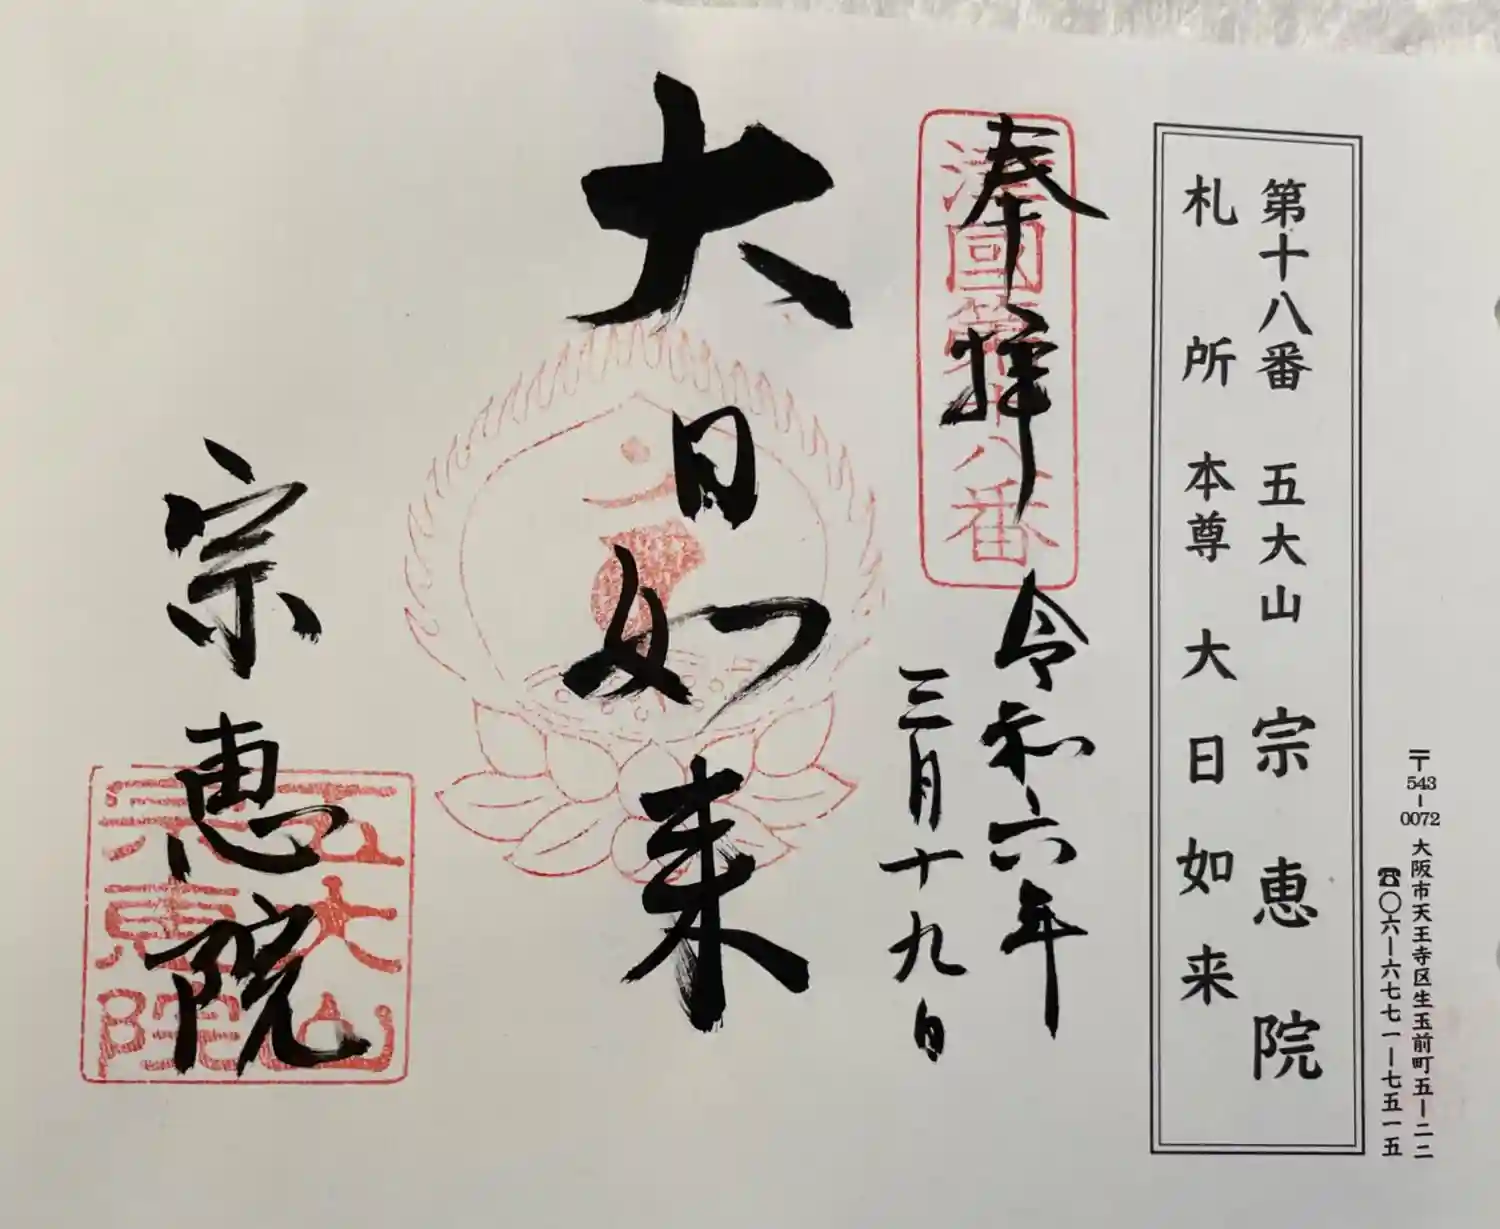 〒543-0072 大阪市天王寺区生玉前町五ー二二
☎〇六ー六七七一ー七五一五
第十八番 五大山 宗恵院
札所本尊 大日如来
奉拝 令和六年
三月十九日
國第十八番
大日如来
宗恵院
五大山
宗恵院